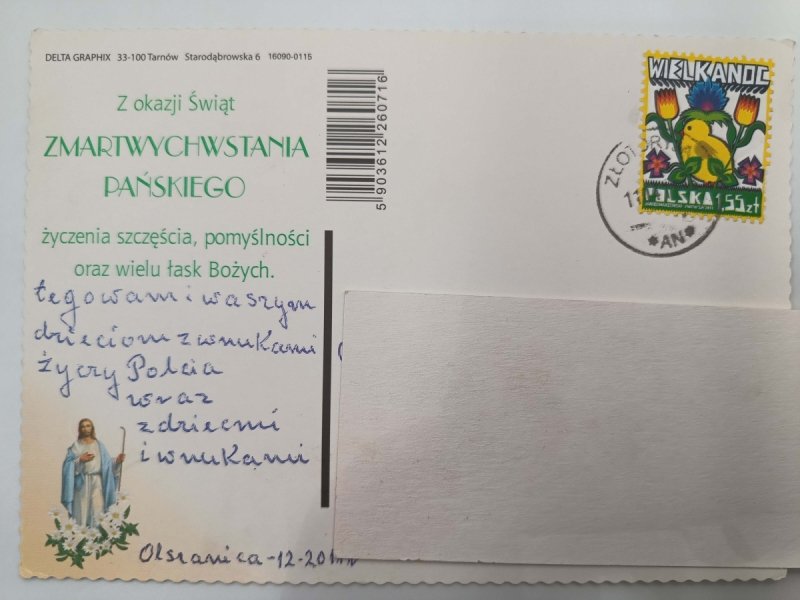 DELTA GRAPHIX 33-100 Tarnów Starodąbrowska 6 16090-0116
Z okazji Świąt
ZMARTWYCHWSTANIA
PAŃSKIEGO
życzenia szczęścia, pomyślności
oraz wielu łask Bożych.
tego wam i waszym
dzieciom z wnukami
życzy Polcia
wraz
z dziećmi
i wnukami
Olszanica -12-
5 903612 260716
WIELKANOC
POLSKA 1,55 zł
*AN*